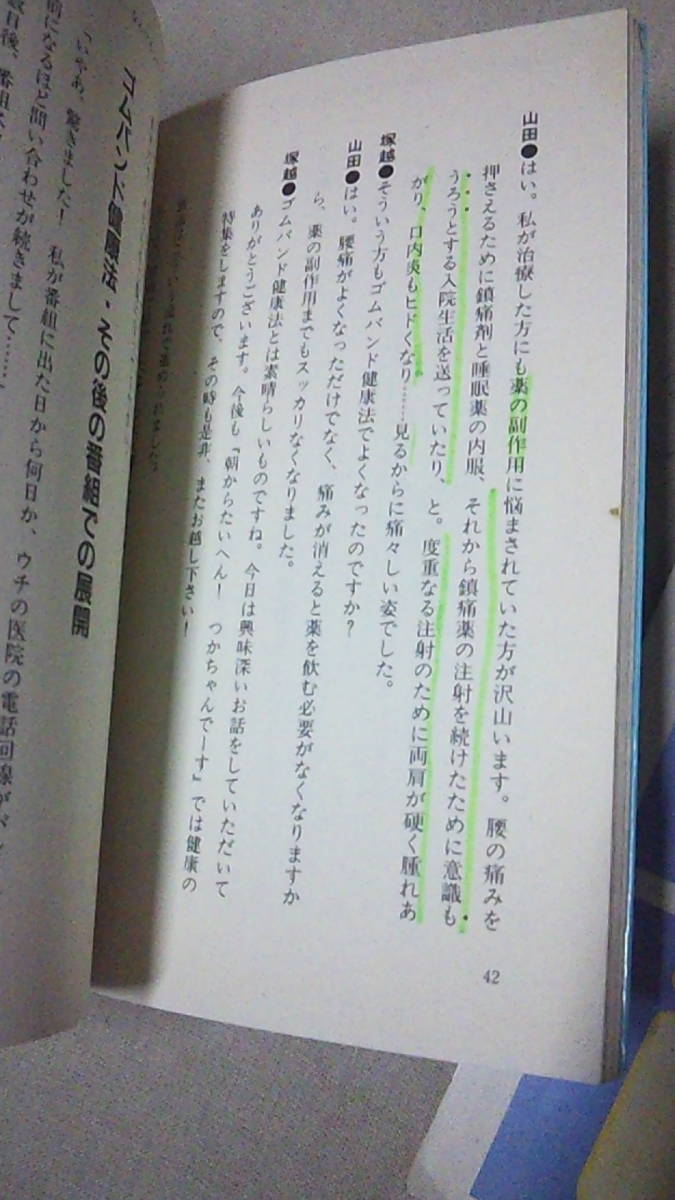 山田●はい。私が治療した方にも薬の副作用に悩まされていた方が沢山います。腰の痛みを
押さえるために鎮痛剤と睡眠薬の内服、それから鎮痛薬の注射を続けたために意識も
うろうとする入院生活を送っていたり、と。度重なる注射のために両肩が硬く腫れあ
がり、口内炎もヒドくなり……見るからに痛々しい姿でした。
塚越●そういう方もゴムバンド健康法でよくなったのですか?
山田●はい。腰痛がよくなっただけでなく、痛みが消えると薬を飲む必要がなくなりますか
ら、薬の副作用までもスッカリなくなりました。
塚越●ゴムバンド健康法とは素晴らしいものですね。今日は興味深いお話をしていただいて
ありがとうございます。今後も『朝からたいへん! つかちゃんでーす』では健康の
特集をしますので、その時も是非、またお越し下さい!
42
ゴムバンド健康法・その後の番組での展開
「いやあ、驚きました! 私が番組に出た日から何日か、ウチの医院の電話回線がパン
前になるほど問い合わせが続きまして……」
数日後、番組